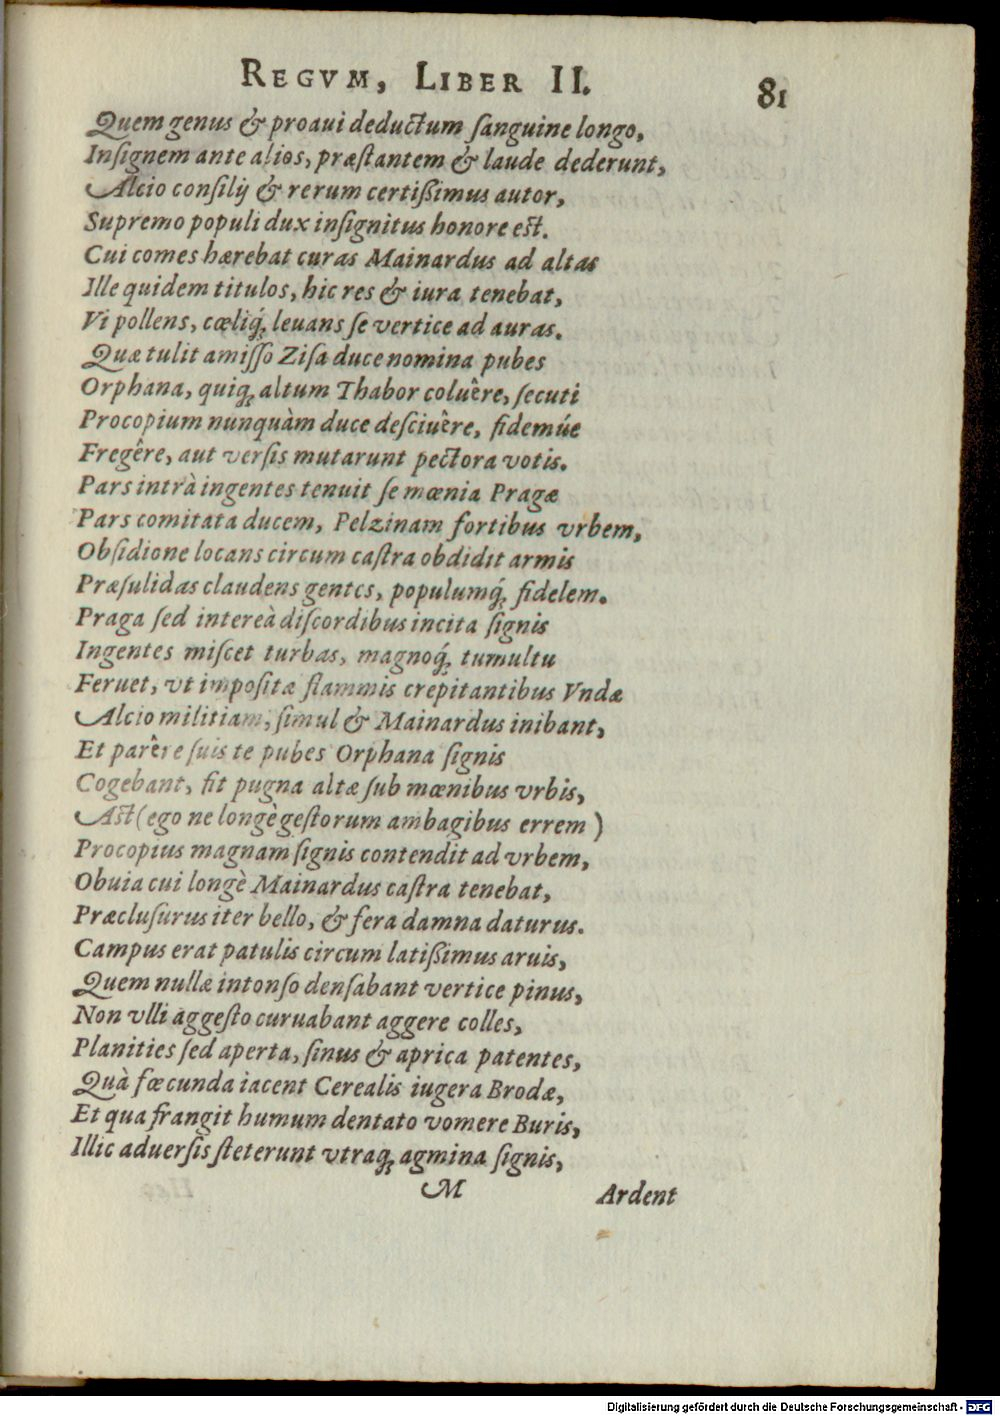 REGVM, LIBER II. 81
Quem genus & proaui deductum ſanguine longo,
Inſignem ante alios, præſtantem & laude dederunt,
Alcio conſilij & rerum certißimus autor,
Supremo populi dux inſignitus honore est.
Cui comes hærebat curas Mainardus ad altas
Ille quidem titulos, hic res & iura tenebat,
Vi pollens, cœliq́; leuans ſe vertice ad auras.
Quæ tulit amiſſo Ziſa duce nomina pubes
Orphana, quiq; altum Thabor coluêre, ſecuti
Procopium nunquàm duce deſciuêre, fidemúe
Fregêre, aut verſis mutarunt pectora votis.
Pars intrà ingentes tenuit ſe mœnia Pragæ
Pars comitata ducem, Pelzinam fortibus vrbem,
Obſidione locans circum caſtra obdidit armis
Præſulidas claudens gentes, populumq́; fidelem.
Praga ſed intereà diſcordibus incita ſignis
Ingentes miſcet turbas, magnoq́; tumultu
Feruet, vt impoſitæ flammis crepitantibus Vndæ
Alcio militiam, ſimul & Mainardus inibant,
Et parêre ſuis te pubes Orphana ſignis
Cogebant, fit pugna altæ ſub mœnibus vrbis,
Ast (ego ne longè geſtorum ambagibus errem)
Procopius magnam ſignis contendit ad vrbem,
Obuia cui longè Mainardus caſtra tenebat,
Præcluſurus iter bello, & fera damna daturus.
Campus erat patulis circum latißimus aruis,
Quem nullæ intonſo denſabant vertice pinus,
Non vlli aggeſto curuabant aggere colles,
Planities ſed aperta, ſinus & aprica patentes,
Quà fœcunda iacent Cerealis iugera Brodæ,
Et qua frangit humum dentato vomere Buris,
Illic aduerſis ſteterunt vtraq; agmina ſignis,
M Ardent
Digitalisierung gefördert durch die Deutsche Forschungsgemeinschaft - DFG